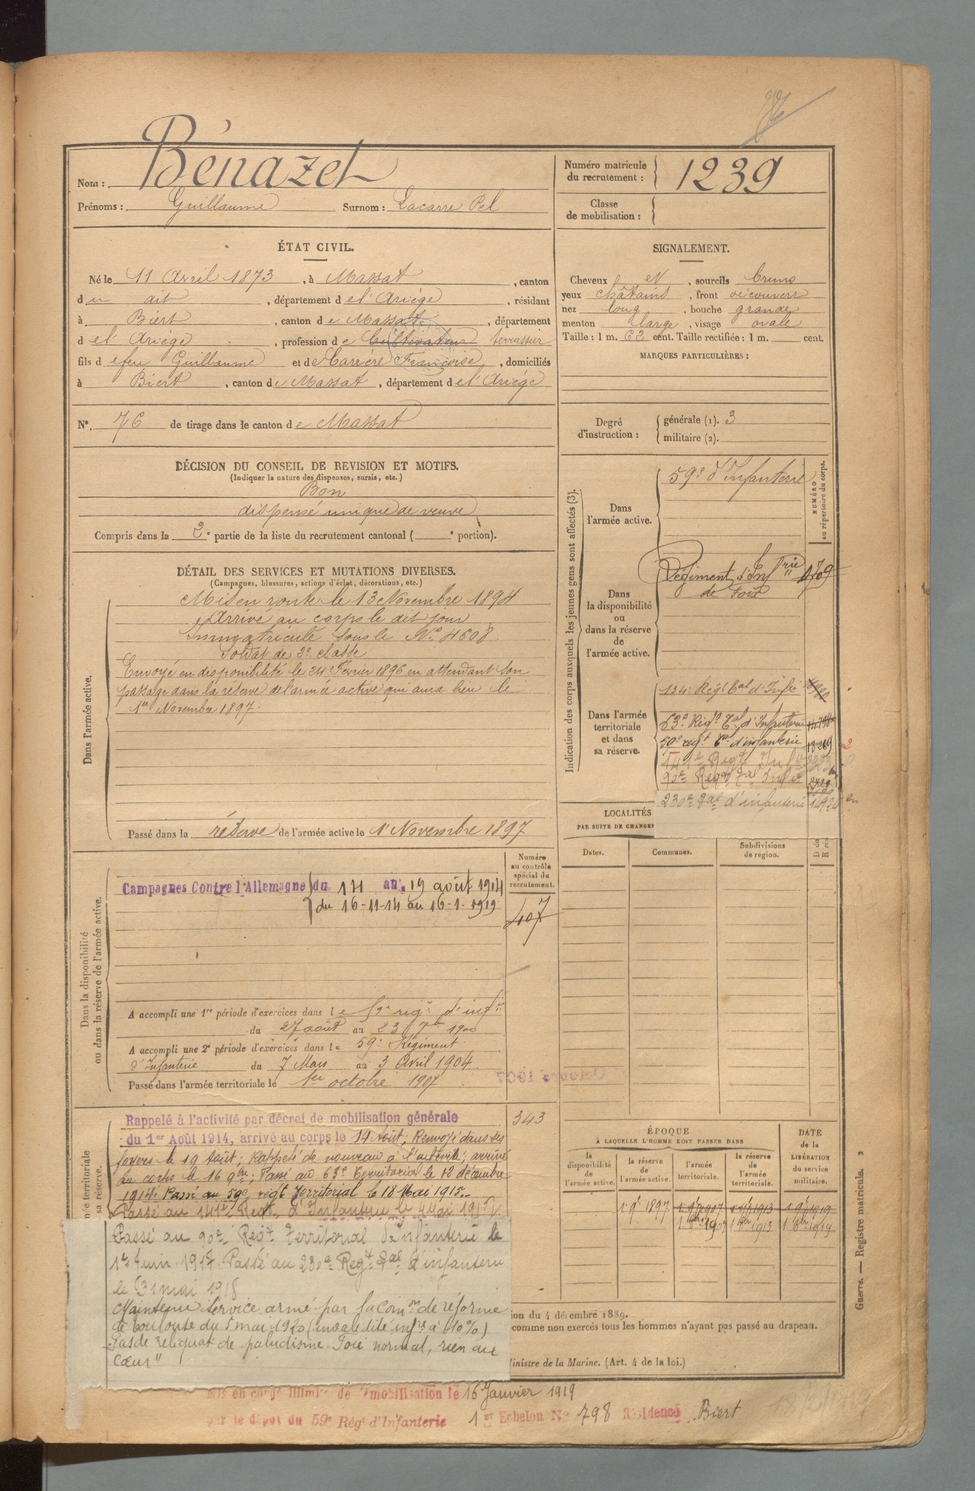 Nom : Bénazet
Prénoms : Guillaume Surnom : Lacarre Pel
Numéro matricule du recrutement : 1239
Classe de mobilisation :
ÉTAT CIVIL.
Né le 11 Avril 1873, à Massat, canton
du dit, département de l'Ariège, résidant
à Biert, canton de Massat, département
de l'Ariège, profession de Cultivateur terrassier
fils de feu Guillaume et de Carrère Françoise, domiciliés
à Biert, canton de Massat, département de l'Ariège
N° 76 de tirage dans le canton de Massat
SIGNALEMENT.
Cheveux et, sourcils bruns
yeux châtains, front découvert
nez long, bouche grande
menton large, visage ovale
Taille : 1 m. 62 cent. Taille rectifiée : 1 m. cent.
MARQUES PARTICULIÈRES :
Degré d'instruction : générale (1). 3
militaire (2).
DÉCISION DU CONSEIL DE REVISION ET MOTIFS.
(Indiquer la nature des dispenses, sursis, etc.)
Bon
dispensé unique de veuve
Compris dans la 2e partie de la liste du recrutement cantonal ( e portion).
DÉTAIL DES SERVICES ET MUTATIONS DIVERSES.
(Campagnes, blessures, actions d'éclat, décorations, etc.)
Dans l'armée active.
Mis en route le 13 Novembre 1894
Arrivé au corps le dit jour
Immatriculé sous le N° 4608
Soldat de 2e classe
Envoyé en disponibilité le 24 Février 1896 en attendant son
passage dans la réserve de l'armée active qui aura lieu le
1er Novembre 1897.
Passé dans la réserve de l'armée active le 1er Novembre 1897
Indication des corps auxquels les jeunes gens sont affectés (3).
NUMÉRO au répertoire du corps.
Dans l'armée active.
59e d'Infanterie
Dans la disponibilité ou dans la réserve de l'armée active.
Régiment d'Infrie 1709
de Foix
Dans l'armée territoriale et dans sa réserve.
134e Régt Eal d'Infie
63e Régt Tal d'Infanterie
59e regt Tal d'infanterie
141e Regt Infie
90e Régt Tal Infie
230e Tal d'infanterie
LOCALITÉS
PAR SUITE DE CHANGE
Dates. Communes. Subdivisions de région.
Numéro au contrôle spécial du recrutement.
407
Dans la disponibilité ou dans la réserve de l'armée active.
Campagnes Contre l'Allemagne du 14 au 19 août 1914
du 16-11-14 au 16-1-1919
A accompli une 1re période d'exercices dans le 59e régt d'inf.
du 27 août au 23 7bre 1900
A accompli une 2e période d'exercices dans le 59e Régiment
d'Infanterie du 7 Mars au 3 Avril 1904
Passé dans l'armée territoriale le 1er octobre 1907
343
Rappelé à l'activité par décret de mobilisation générale
du 1er Août 1914, arrivé au corps le 14 Août; Renvoyé dans ses
foyers le 19 Août; Rappelé de nouveau à l'activité; arrivé
au corps le 16 9bre; Passé au 63e Territorial le 12 décembre
1914. Passé au 59e régt Territorial le 18 Mai 1915.
Passé au 141e Régt d'Infanterie le
Passé au 90e Régt Territorial d'Infanterie le
1er Juin 1917. Passé au 230e Régt Tal d'infanterie
le 31 mai 1918
Maintenu Service armé par la Comon de réforme
de Toulouse du 5 mai 1920 (invalidité infre à 10%)
Pas de reliquat de paludisme. Foie normal, rien au
cœur"
ÉPOQUE
À LAQUELLE L'HOMME DOIT PASSER DANS
la disponibilité de l'armée active. la réserve de l'armée active. l'armée territoriale. la réserve de l'armée territoriale.
DATE de la LIBÉRATION du service militaire.
1 9 1897
1 8bre 1907 1 8bre 1913 1 8bre 1919
ion du 4 décembre 1889.
comme non exercés tous les hommes n'ayant pas passé au drapeau.
inistre de la Marine. (Art. 4 de la loi.)
Mis en congé illimité de démobilisation le 16 Janvier 1919
par le dépôt du 59e Régt d'Infanterie 1er Echelon N° 798 Résidence Biert
Guerre. — Registre matricule.